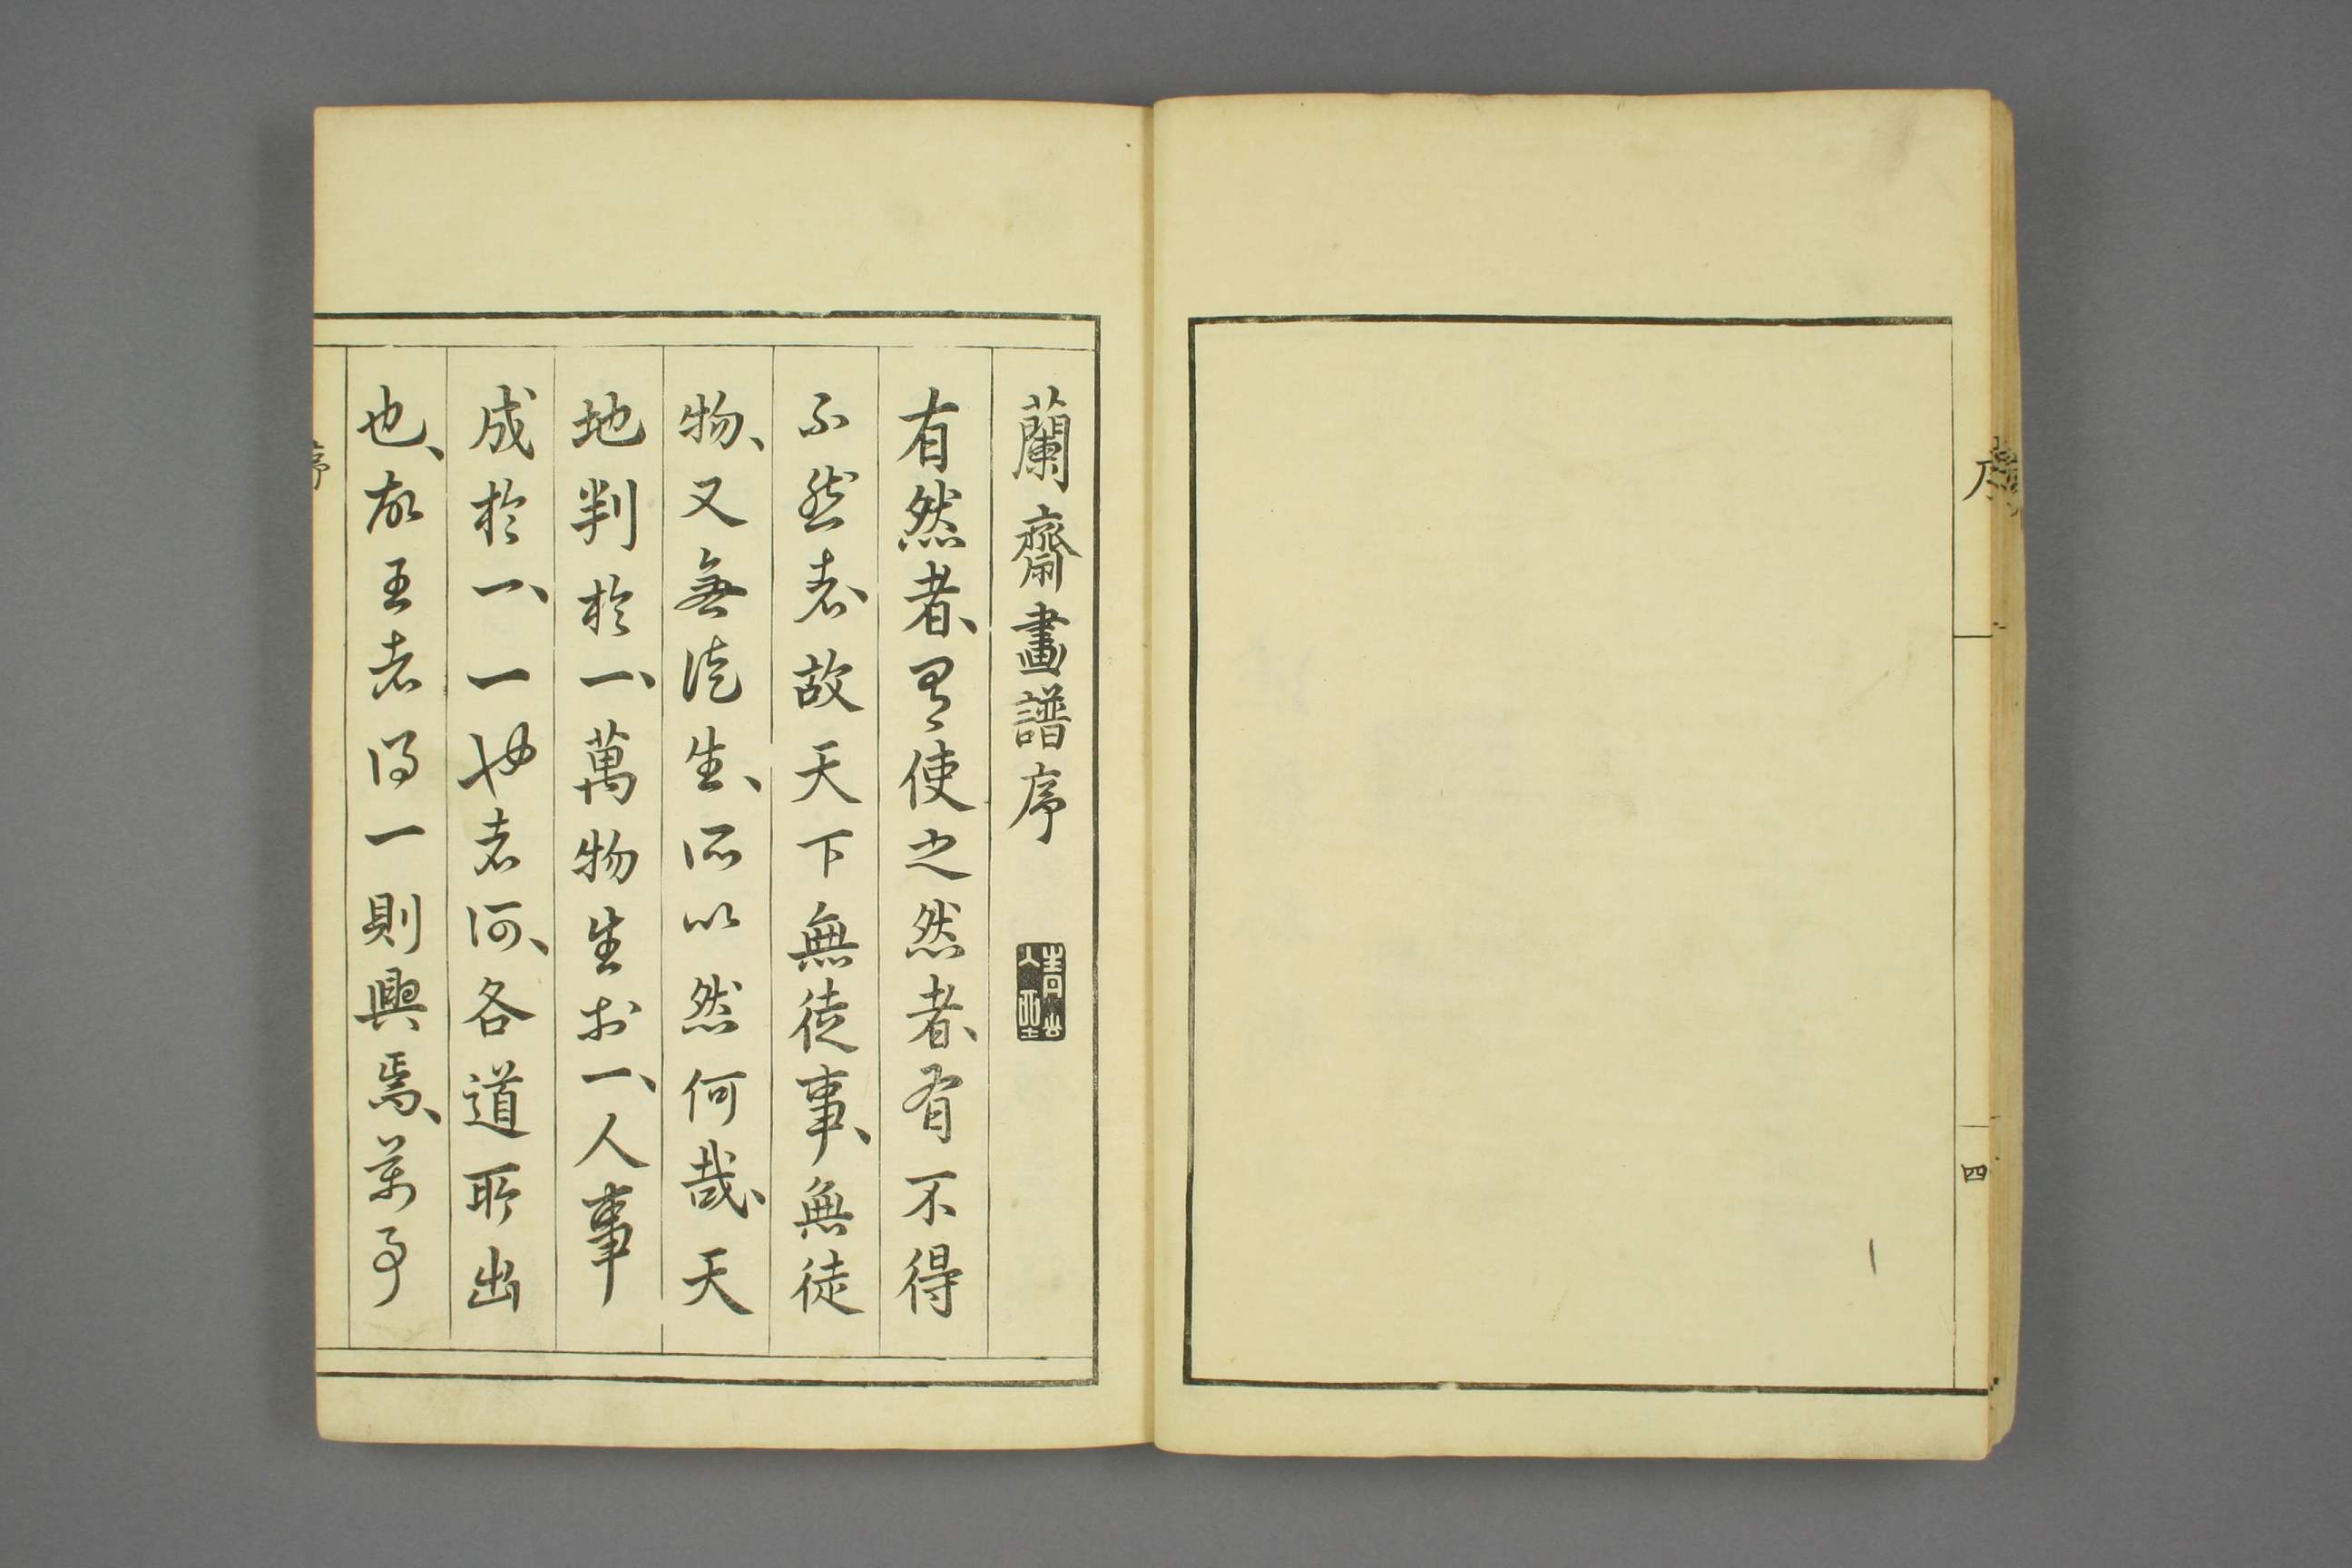 四
蘭齋畫譜序
有然者、有使之然者、有不得
不然者故天下無徒事、無徒
物、又無徒生、所以然何哉、天
地判於一、萬物生於一、人事
成於一、一也者何、各道所出
也、故王者得一則興焉、萬事
序